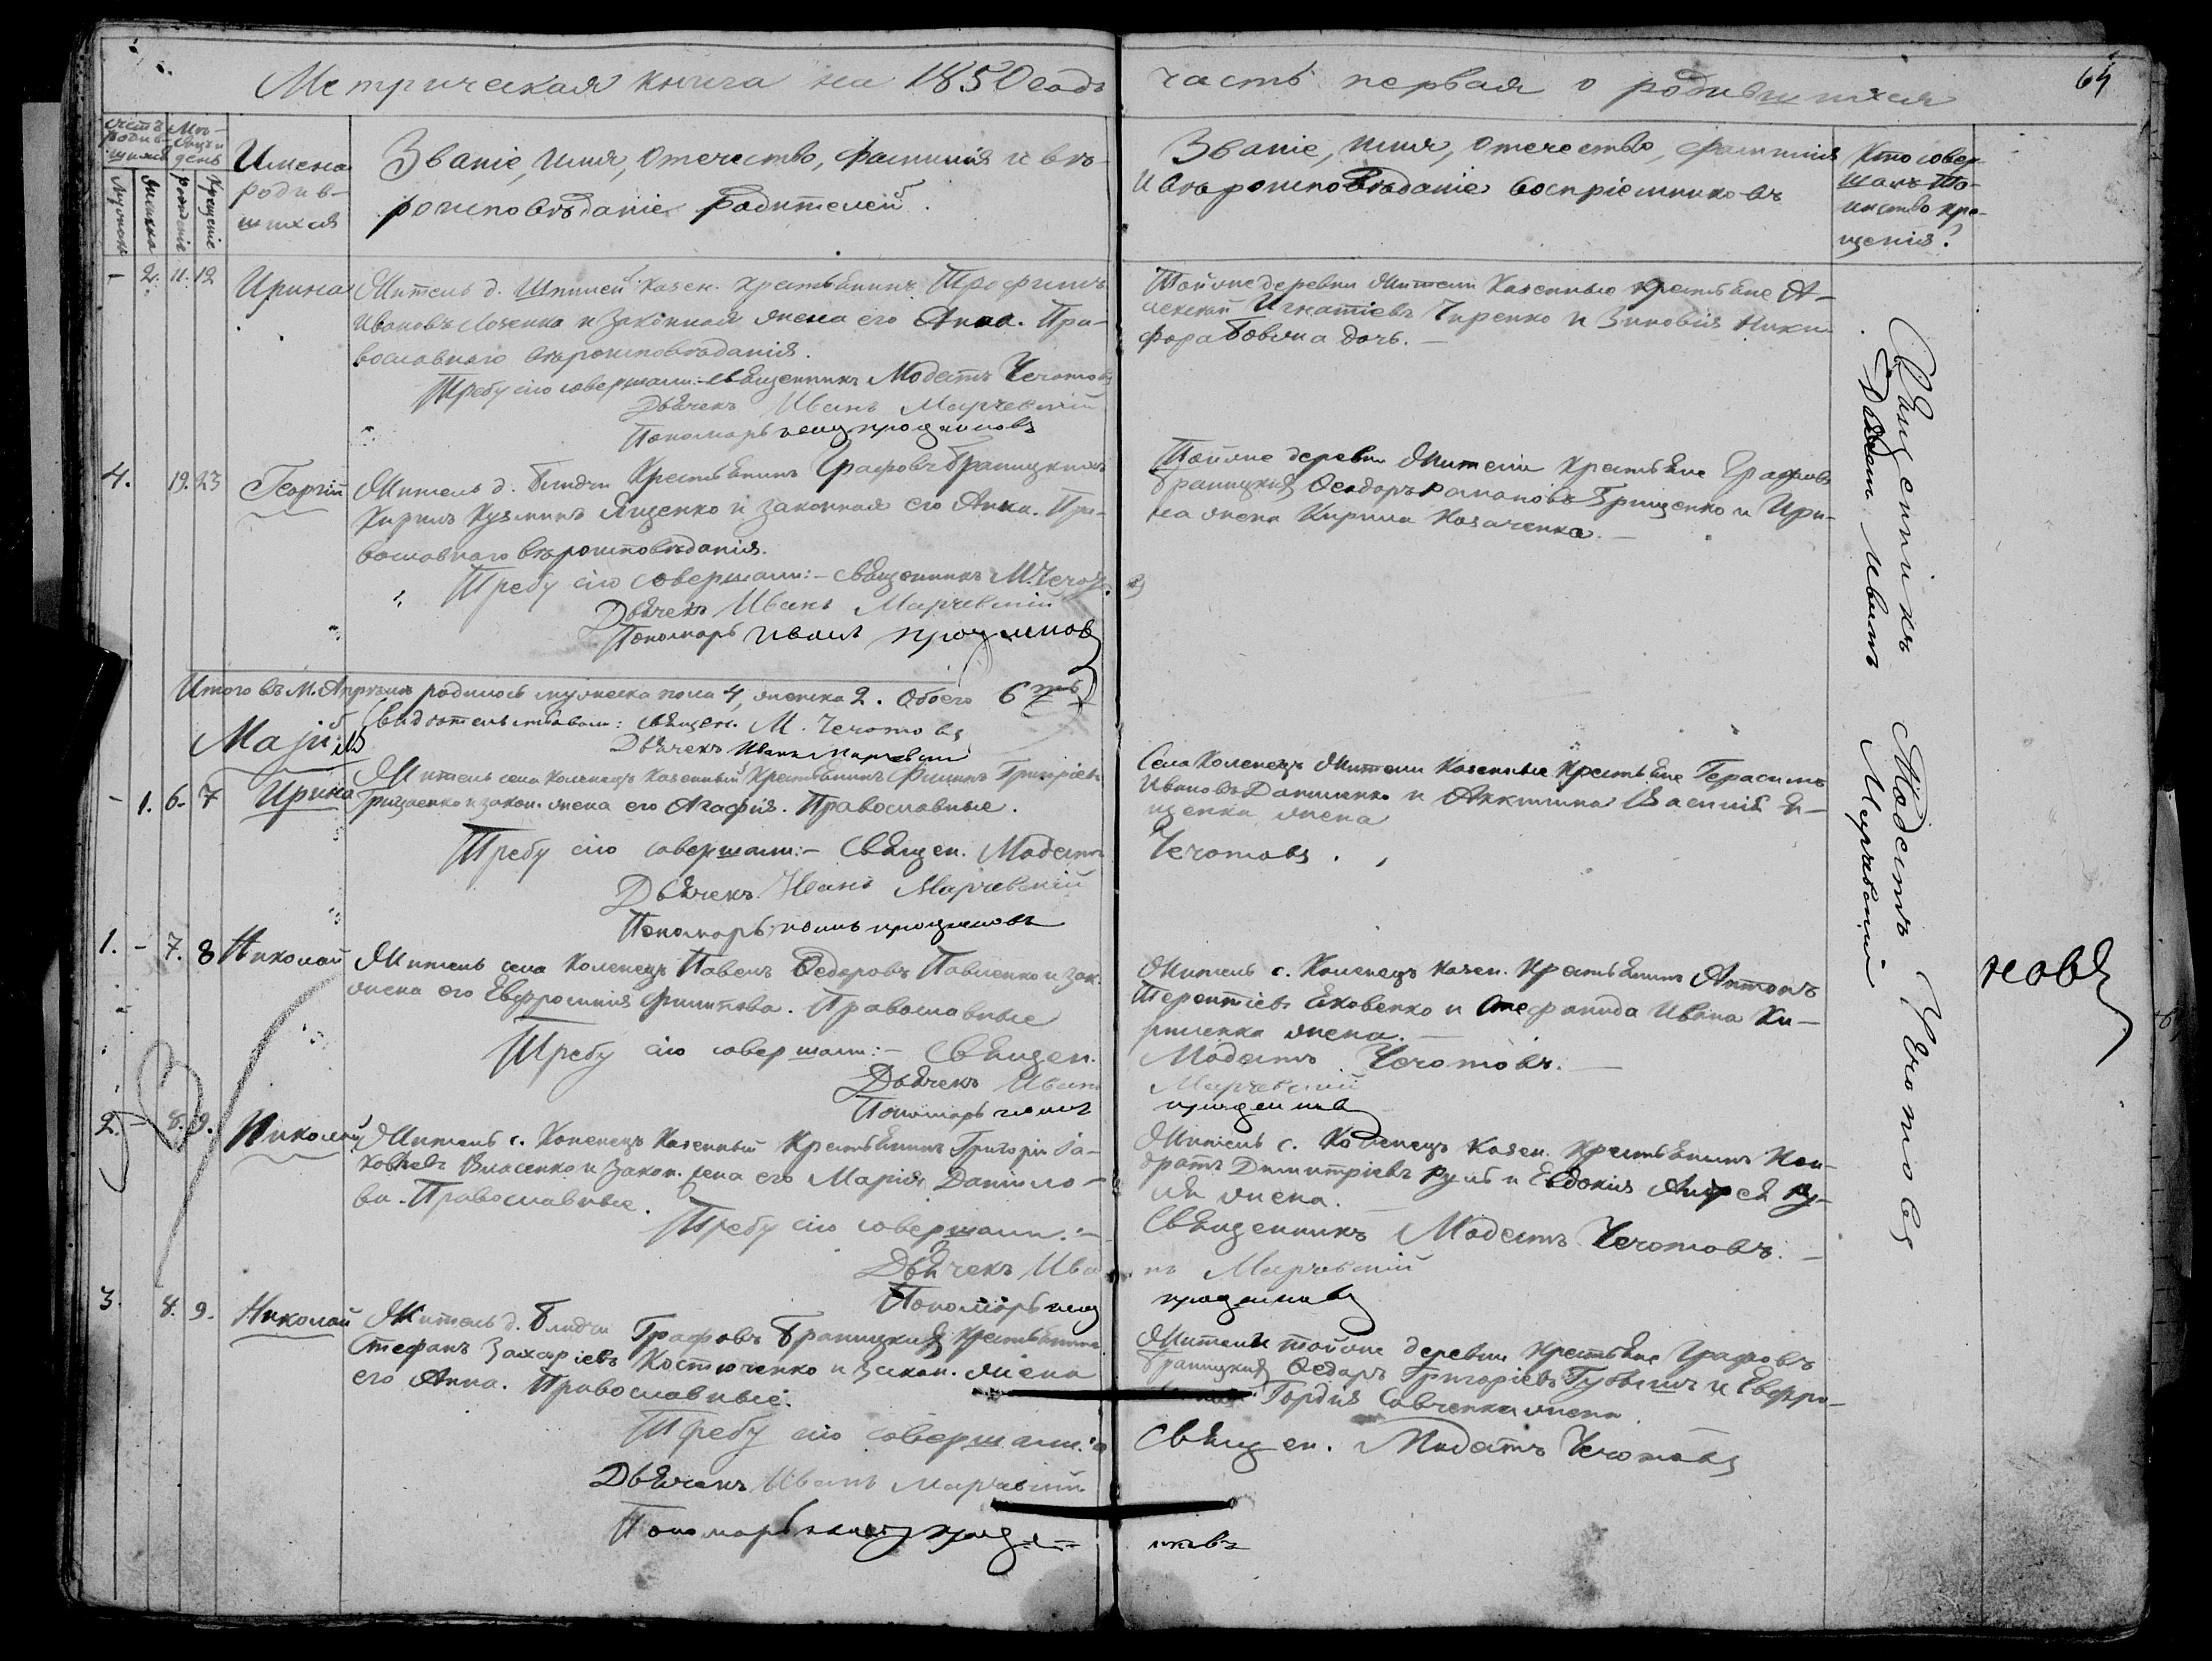 Метрическая книга на 1850 годъ часть первая о родившихся
64
Счетъ родив-шихся
Мѣ-сяцъ и день
Мужеска
Женска
Рожденіе
Крещеніе
Имена
родив-
шихся
Званіе, имя, отечество, фамилія и вѣ-
роисповѣданіе Родителей.
Званіе, имя, отечество, фамилія
и вѣроисповѣданіе воспріемниковъ
Кто совер-
шалъ Та-
инство кре-
щенія?
- 2. 11. 12 Ирина
Житель д. казен. крестьянинъ Трофимъ
Ивановъ Лозенко и законная жена его Анна. Пра-
вославнаго вѣроисповѣданія.
Требу сію совершали: священникъ Модестъ Чечотовъ
Дьячекъ Иванъ Марчевскій
Пономарь
Тойже деревни жители казенные крестьяне А-
лексѣй Игнатіевъ Чиренко и Зиновія Ники-
фора дочь. —
4. 19. 23 Георгій
Житель д. Блидчи Крестьянинъ Графовъ Браницкихъ
Кирилъ Кузминъ Ященко и законная его Анна. Пра-
вославнаго вѣроисповѣданія.
Требу сію совершали: - священникъ М. Чечотовъ
Дьячекъ Иванъ Марчевскій
Пономарь Иванъ
Тойже деревни жители крестьяне Графовъ
Браницкихъ Ѳеодоръ Романовъ Грищенко и Ири-
на жена Кирила Козаченка. —
Итого въ М. Апрѣлѣ родилось мужеска пола 4, женска 2. Обоего 6ть
Свидѣтельствовали: священ. М. Чечотовъ
Дьячекъ Иванъ Марчевскій
Маій
- 1. 6. 7 Ирина
Житель села Коленецъ Казенный Крестьянинъ Филипъ Григоріевъ
Грищенко и закон. жена его Агафія. Православные.
Требу сію совершали: - Священ. Модестъ
Чечотовъ.
Дьячекъ Иванъ Марчевскій
Пономарь
Села Коленецъ жители Казенные Крестьяне Герасимъ
Ивановъ Даниленко и Акилина Василія Я-
щенка жена
1. - 7. 8 Николай
Житель села Коленецъ Павелъ Ѳедоровъ Павленко и зак.
жена его Евфросинія Филипова. Православные
Требу сію совершали: - Священ.
Модестъ Чечотовъ. —
Дьячекъ Иванъ
Марчевскій
Пономарь
Житель с. Коленецъ казен. Крестьянинъ Антонъ
Терентіевъ Яковенко и Стефанида Ивана Ки-
риленка жена. —
2. - 8. 9. Николай
Житель с. Коленецъ Казенный Крестьянинъ Григорій Іа-
ковлевъ Власенко и закон. жена его Марія Данило-
ва. Православные.
Требу сію совершали: -
Священникъ Модестъ Чечотовъ. —
Дьячекъ Иванъ Марчевскій
Пономарь
Житель с. Коленецъ казен. Крестьянинъ Кон-
дратъ Димитріевъ Руль и Евдокія Андрея Ру-
ля жена.
3. 8. 9. Николай
Житель д. Блидчи Графовъ Браницкихъ крестьянинъ
Стефанъ Захаріевъ Костюченко и закон. жена
его Анна. Православные.
Требу сію совершали:
Священ. Модестъ Чечотовъ
Дьячекъ Иванъ Марчевскій
Пономарь
Жители тойже деревни крестьяне Графовъ
Браницкихъ Ѳедоръ Григоріевъ и Евфро-
Гордія Савченка жена.
Священникъ Модестъ Чечотовъ
Дьячекъ Иванъ Марчевскій
новъ